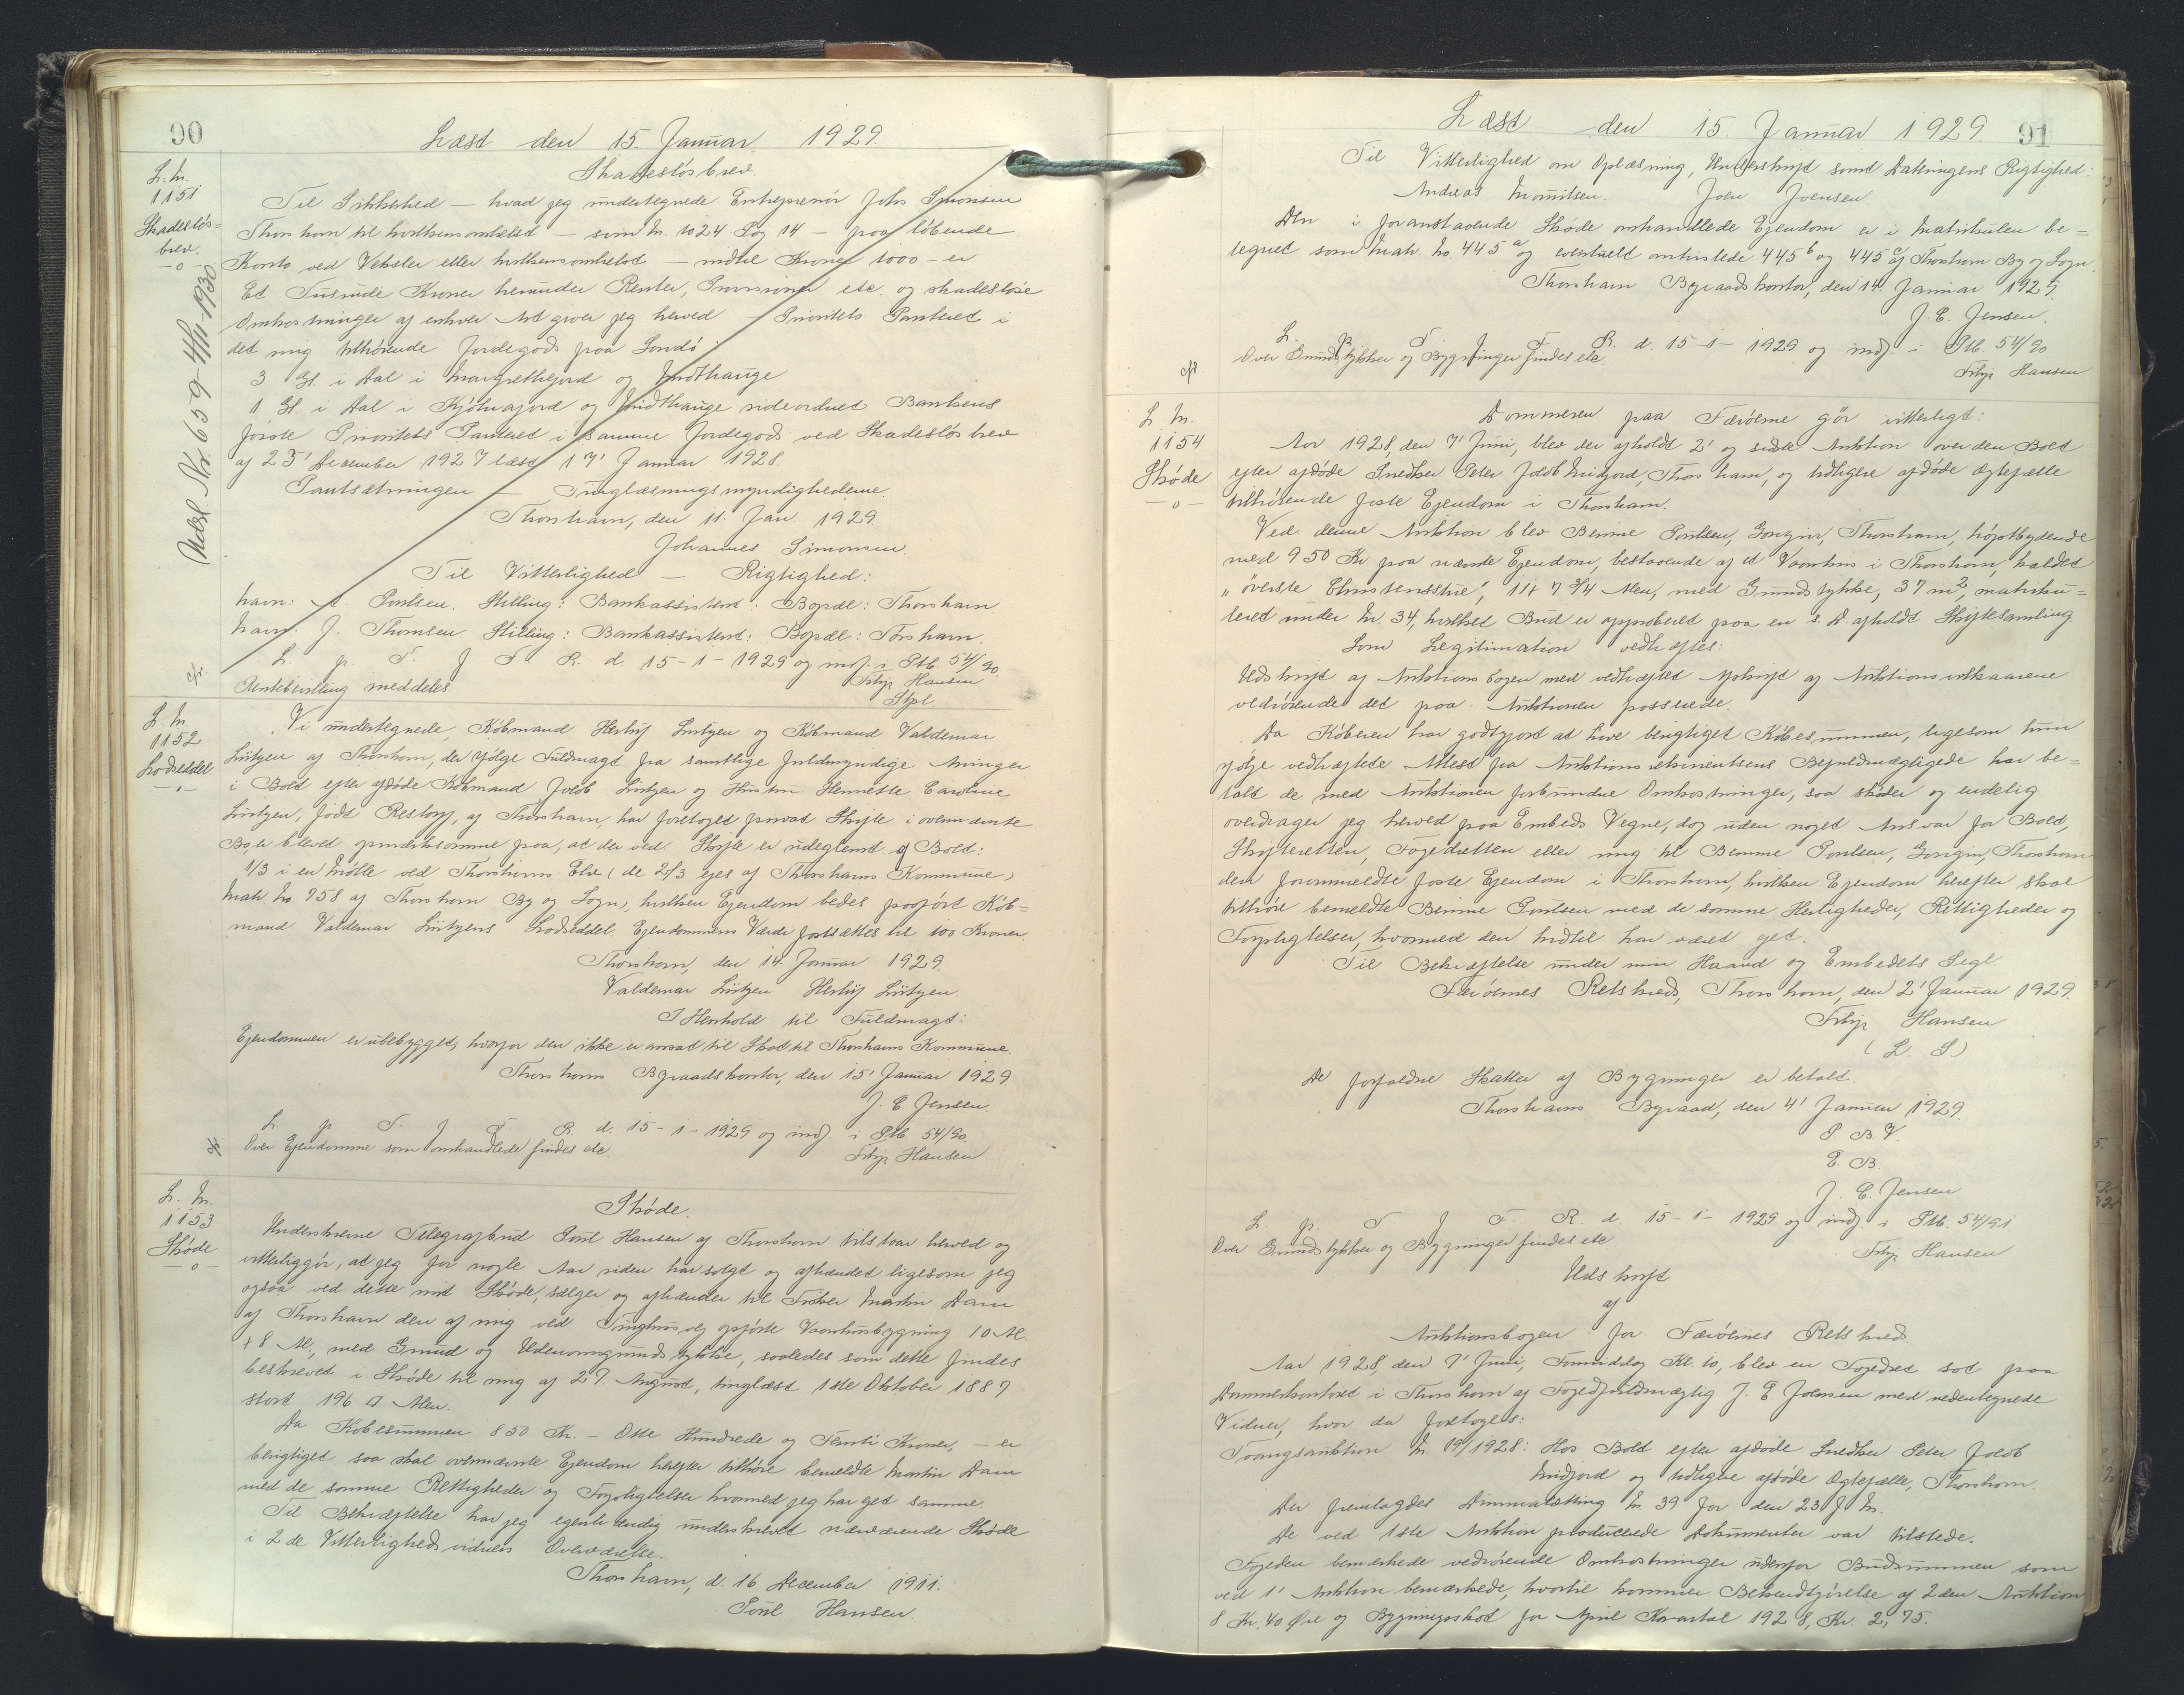 90
Læst den 15. Januar 1929.
L. Nr.
1151
Skadesløs=
brev.
—o—
Udsl. Nr. 659 - 4/11-1930
Skadesløsbrev.
Til Sikkerhed — hvad jeg undertegnede Entreprenør Johs Simonsen
Thorshavn til hvilkensomhelst — som Nr. 1024 Pag 14 — paa løbende
Konto ved Veksler eller hvilkensomhelst — indtil Kroner 1000 — er
Et Tusinde Kroner herunder Renter, Provisioner etc. og skadesløse
Omkostninger af enhver Art giver jeg herved — Prioritets Panteret i
det mig tilhørende Jordegods paa Sandø:
3 Gl. i Dal i Margrethejord og Indthauge
1 Gl. i Dal i Kjølvajord og Indthauge sideordnet Bankens
første Prioritets Panteret i samme Jordegods ved Skadesløsbrev
af 23' December 1927 læst 17' Januar 1928.
Pantsætningen — Tinglæsningsmyndighederne.
Thorshavn, den 11. Jan. 1929
Johannes Simonsen.
Til Vitterlighed — Rigtighed:
Navn: A. Poulsen. Stilling: Bankassistent. Bopæl: Thorshavn
Navn: J. Thomsen. Stilling: Bankassistent: Bopæl: Torshavn.
L. p. T. f. F. R. d. 15-1-1929 og indf. i Ptb. 54/90.
Rentebevilling meddeles
Filip Hansen
Stpl.
L. Nr.
1152
Lodseddel
—o—
Vi undertegnede Købmand Herluf Lützen og Købmand Valdemar
Lützen af Thorshavn, der ifølge Fuldmagt fra samtlige fuldmyndige Arvinger
i Boet efter afdøde Købmand Jacob Lützen og Hustru Henriette Caroline
Lützen, født Restorff, af Thorshavn, har foretaget privat Skifte i ovennævnte
Bo, er blevet opmærksomme paa, at der ved Skifte er udeglemt af Boet:
1/3 i en Mølle ved Thorshavns Elv (de 2/3 ejes af Thorshavns Kommune,
Matr. No. 758 af Thorshavn By og Sogn), hvilken Ejendom bedes paaført Køb=
mand Valdemar Lützens Lodseddel. Ejendommens Værdi fastsættes til 100 Kroner.
Thorshavn, den 14. Januar 1929.
Valdemar Lützen Herluf Lützen.
I Henhold til Fuldmagt:
Ejendommen er ubebygget, hvorfor den ikke er ansat til Skat til Thorshavns Kommune.
Thorshavns Byraadskontor, den 15' Januar 1929
J. E. Jensen
L. p. T. f. F. R. d. 15-1-1929 og indf. i Ptb. 54/90.
Over Ejendomme som omhandlede findes etc.
Filip Hansen
L. Nr.
1153
Skøde
—o—
Skøde.
Underskrevne Telegrafbud Poul Hansen af Thorshavn tilstaar herved og
vitterliggør, at jeg for nogle Aar siden har solgt og afhændet ligesom jeg
ogsaa ved dette mit Skøde, sælger og afhænder til Fisker Martin Dam
af Thorshavn den af mig ved Tinghusvej opførte Vaanhusbygning 10 Al.
+ 8 Al., med Grund og Udenomsgrundstykke, saaledes som dette findes
beskrevet i Skøde til mig af 27. August, tinglæst 1ste Oktober 1887
stort 196 □ Alen.
Da Købesummen 850 Kr. — Otte Hundrede og Femti Kroner, — er
berigtiget saa skal ovennævnte Ejendom herefter tilhøre bemeldte Martin Dam
med de samme Rettigheder og Forpligtelser hvormed jeg har ejet samme.
Til Bekræftelse har jeg egenhændig underskrevet nærværende Skøde
i 2de Vitterlighedsvidners Overværelse.
Thorshavn, d. 16 December 1911.
Poul Hansen.
Læst den 15. Januar 1929. 91
Til Vitterlighed om Oplæsning, Underskrift samt Dateringens Rigtighed:
Andreas Mouritsen. John Joensen.
Den i foranstaaende Skøde omhandlede Ejendom er i Matrikulen be=
tegnet som Matr. No 445 a og eventuelt omhandlede 445 b og 445 c af Thorshavn By og Sogn.
Thorshavn Byraadskontor, den 14 Januar 1929.
J. E. Jensen.
L. p. T. f. F. R. d. 15-1-1929 og indf. i Ptb. 54/90
Over Grundstykker og Bygninger findes etc.
Filip Hansen
L. Nr.
1154
Skøde
—o—
Dommeren paa Færøerne gør vitterligt:
Aar 1928, den 7' Juni, blev der afholdt 2' og sidste Auktion over den Boet
efter afdøde Snedker Peter Jacob Midjord, Thorshavn, og tidligere afdøde Ægtefælle
tilhørende faste Ejendom i Thorshavn.
Ved denne Auktion blev Benine Poulsen, Gongin, Thorshavn, højstbydende
med 950 Kr. paa nævnte Ejendom, bestaaende af et Vaanhus i Thorshavn, kaldet
„øverste Elmstensstue", 11 + 7 3/4 Alen, med Grundstykke, 37 m², matriku=
leret under Nr. 34, hvilket Bud er approberet paa en s. D. afholdt Skiftesamling
Som Legitimation vedhæftes:
Udskrift af Auktionsbogen med vedhæftet Afskrift af Auktionsvilkaarene
vedrørende det paa Auktionen passerede.
Da Køberen har godtgjort at have berigtiget Købesummen, ligesom hun
ifølge vedhæftede Attest fra Auktionsrekvirentens Befuldmægtigede har be=
talt de med Auktionen forbundne Omkostninger, saa skøder og endelig
overdrager jeg herved paa Embeds Vegne, dog uden noget Ansvar for Boet,
Skifteretten, Fogedretten eller mig til Benine Poulsen, Gongin, Thorshavn
den forommeldte faste Ejendom i Thorshavn, hvilken Ejendom herefter skal
tilhøre bemeldte Benine Poulsen med de samme Herligheder, Rettigheder og
Forpligtelser, hvormed den hidtil har været ejet.
Til Bekræftelse under min Haand og Embedets Segl
Færøernes Retskreds, Thorshavn, den 2' Januar 1929.
Filip Hansen
(L. S.)
De forfaldne Skatter af Bygninger er betalt.
Thorshavns Byraad, den 4' Januar 1929.
P. B. V.
E. B.
J. E. Jensen
L. p. T. f. F. R. d. 15-1-1929 og indf. i Ptb. 54/91
Over Grundstykker og Bygninger findes etc
Filip Hansen
Udskrift
af
Auktionsbogen for Færøernes Retskreds.
Aar 1928, den 7' Juni, Formiddag Kl. 10, blev en Fogedret sat paa
Dommerkontoret i Thorshavn af Fogedfuldmægtig J. E. Joensen med nedentegnede
Vidner, hvor da foretoges:
Tvangsauktion Nr. 19/1928: Hos Boet efter afdøde Snedker Peter Jacob
Midjord og tidligere afdøde Ægtefælle, Thorshavn.
Der fremlagdes Dimmalætting Nr. 39 for den 23 f. M.
De ved 1ste Auktion producerede Dokumenter var tilstede.
Fogeden bemærkede vedrørende Omkostninger udenfor Budsummen som
ved 1' Auktion bemærkede, hvortil kommer Bekendtgørelse af 2den Auktion
8 Kr. 40 Øre og Bygningsskat for April Kvartal 1928, Kr. 2,75.